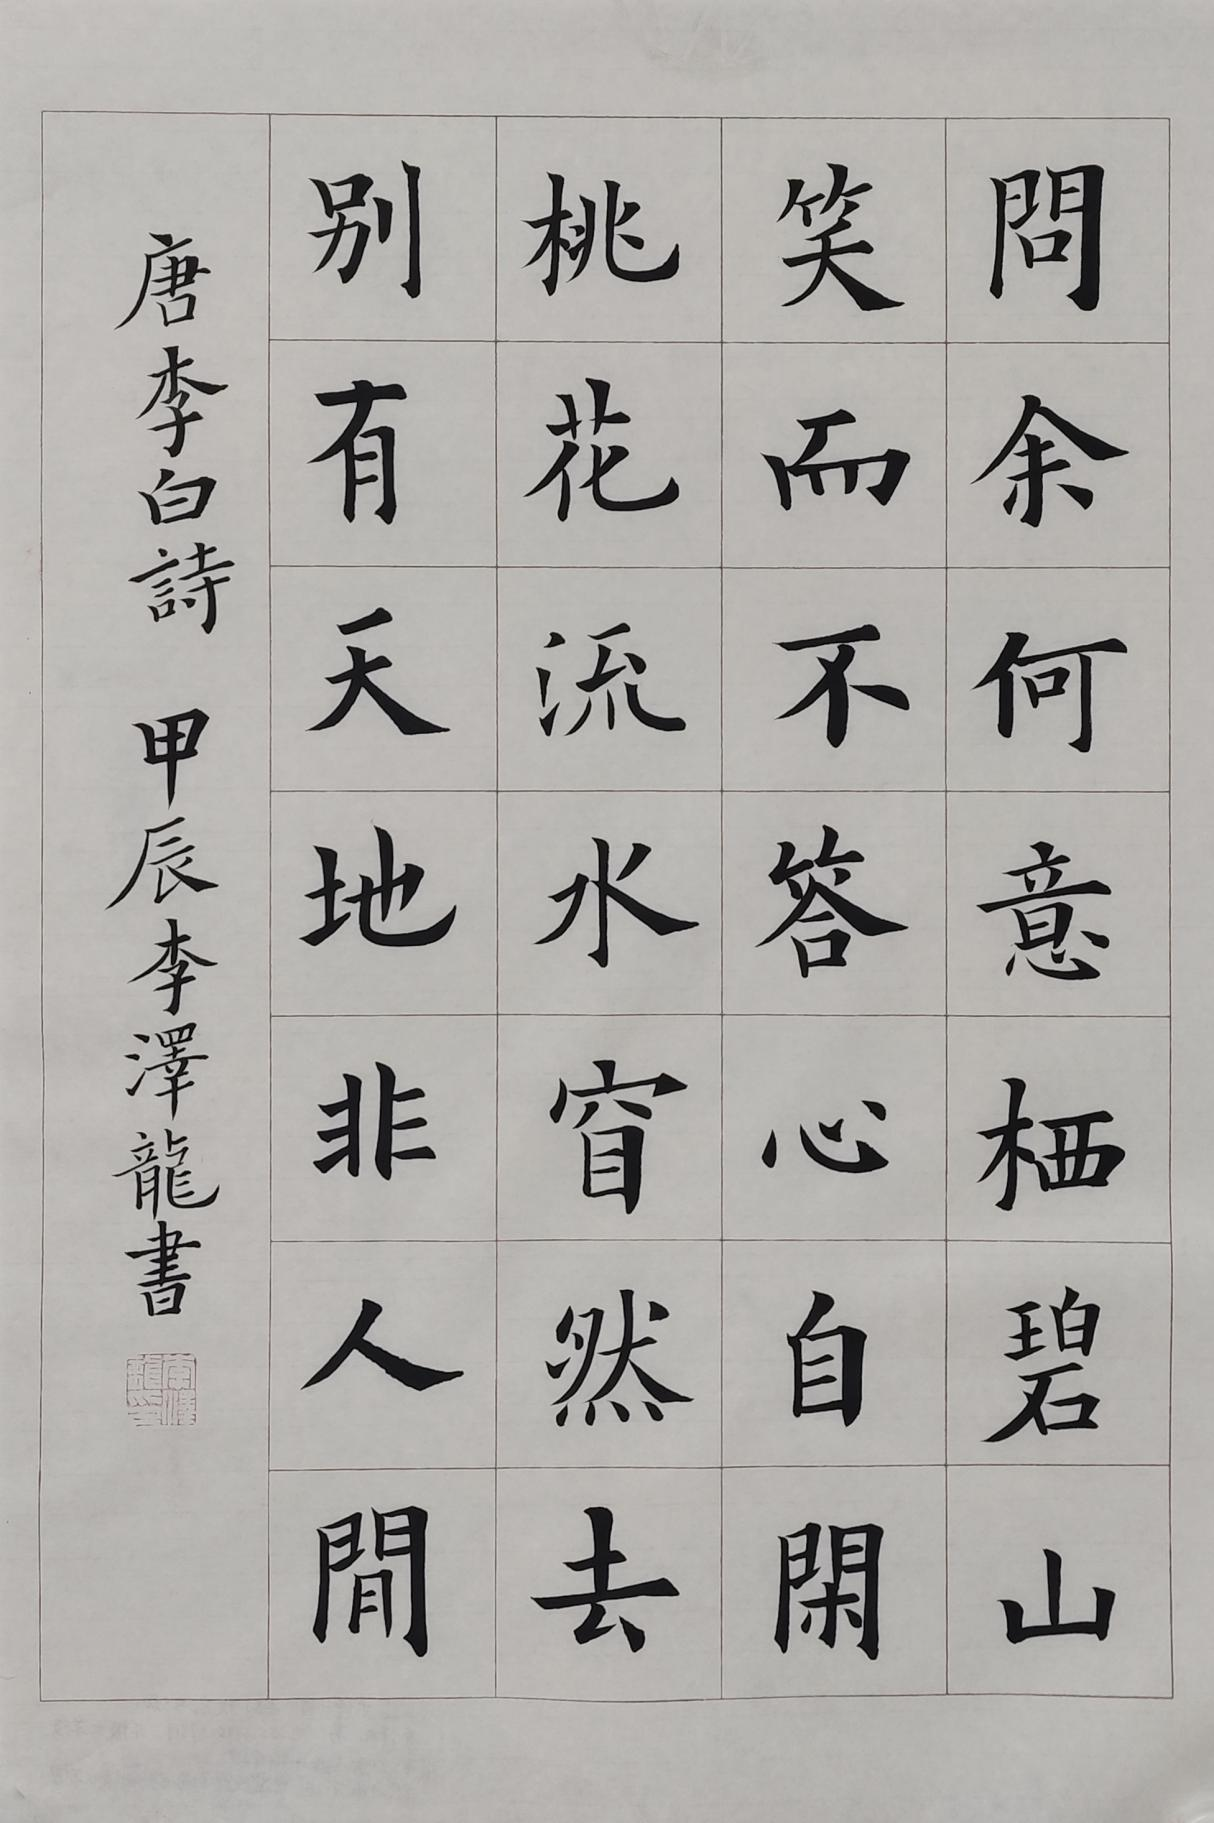 問余何意栖碧山
笑而不答心自閑
桃花流水窅然去
别有天地非人間
唐李白詩 甲辰李澤龍書